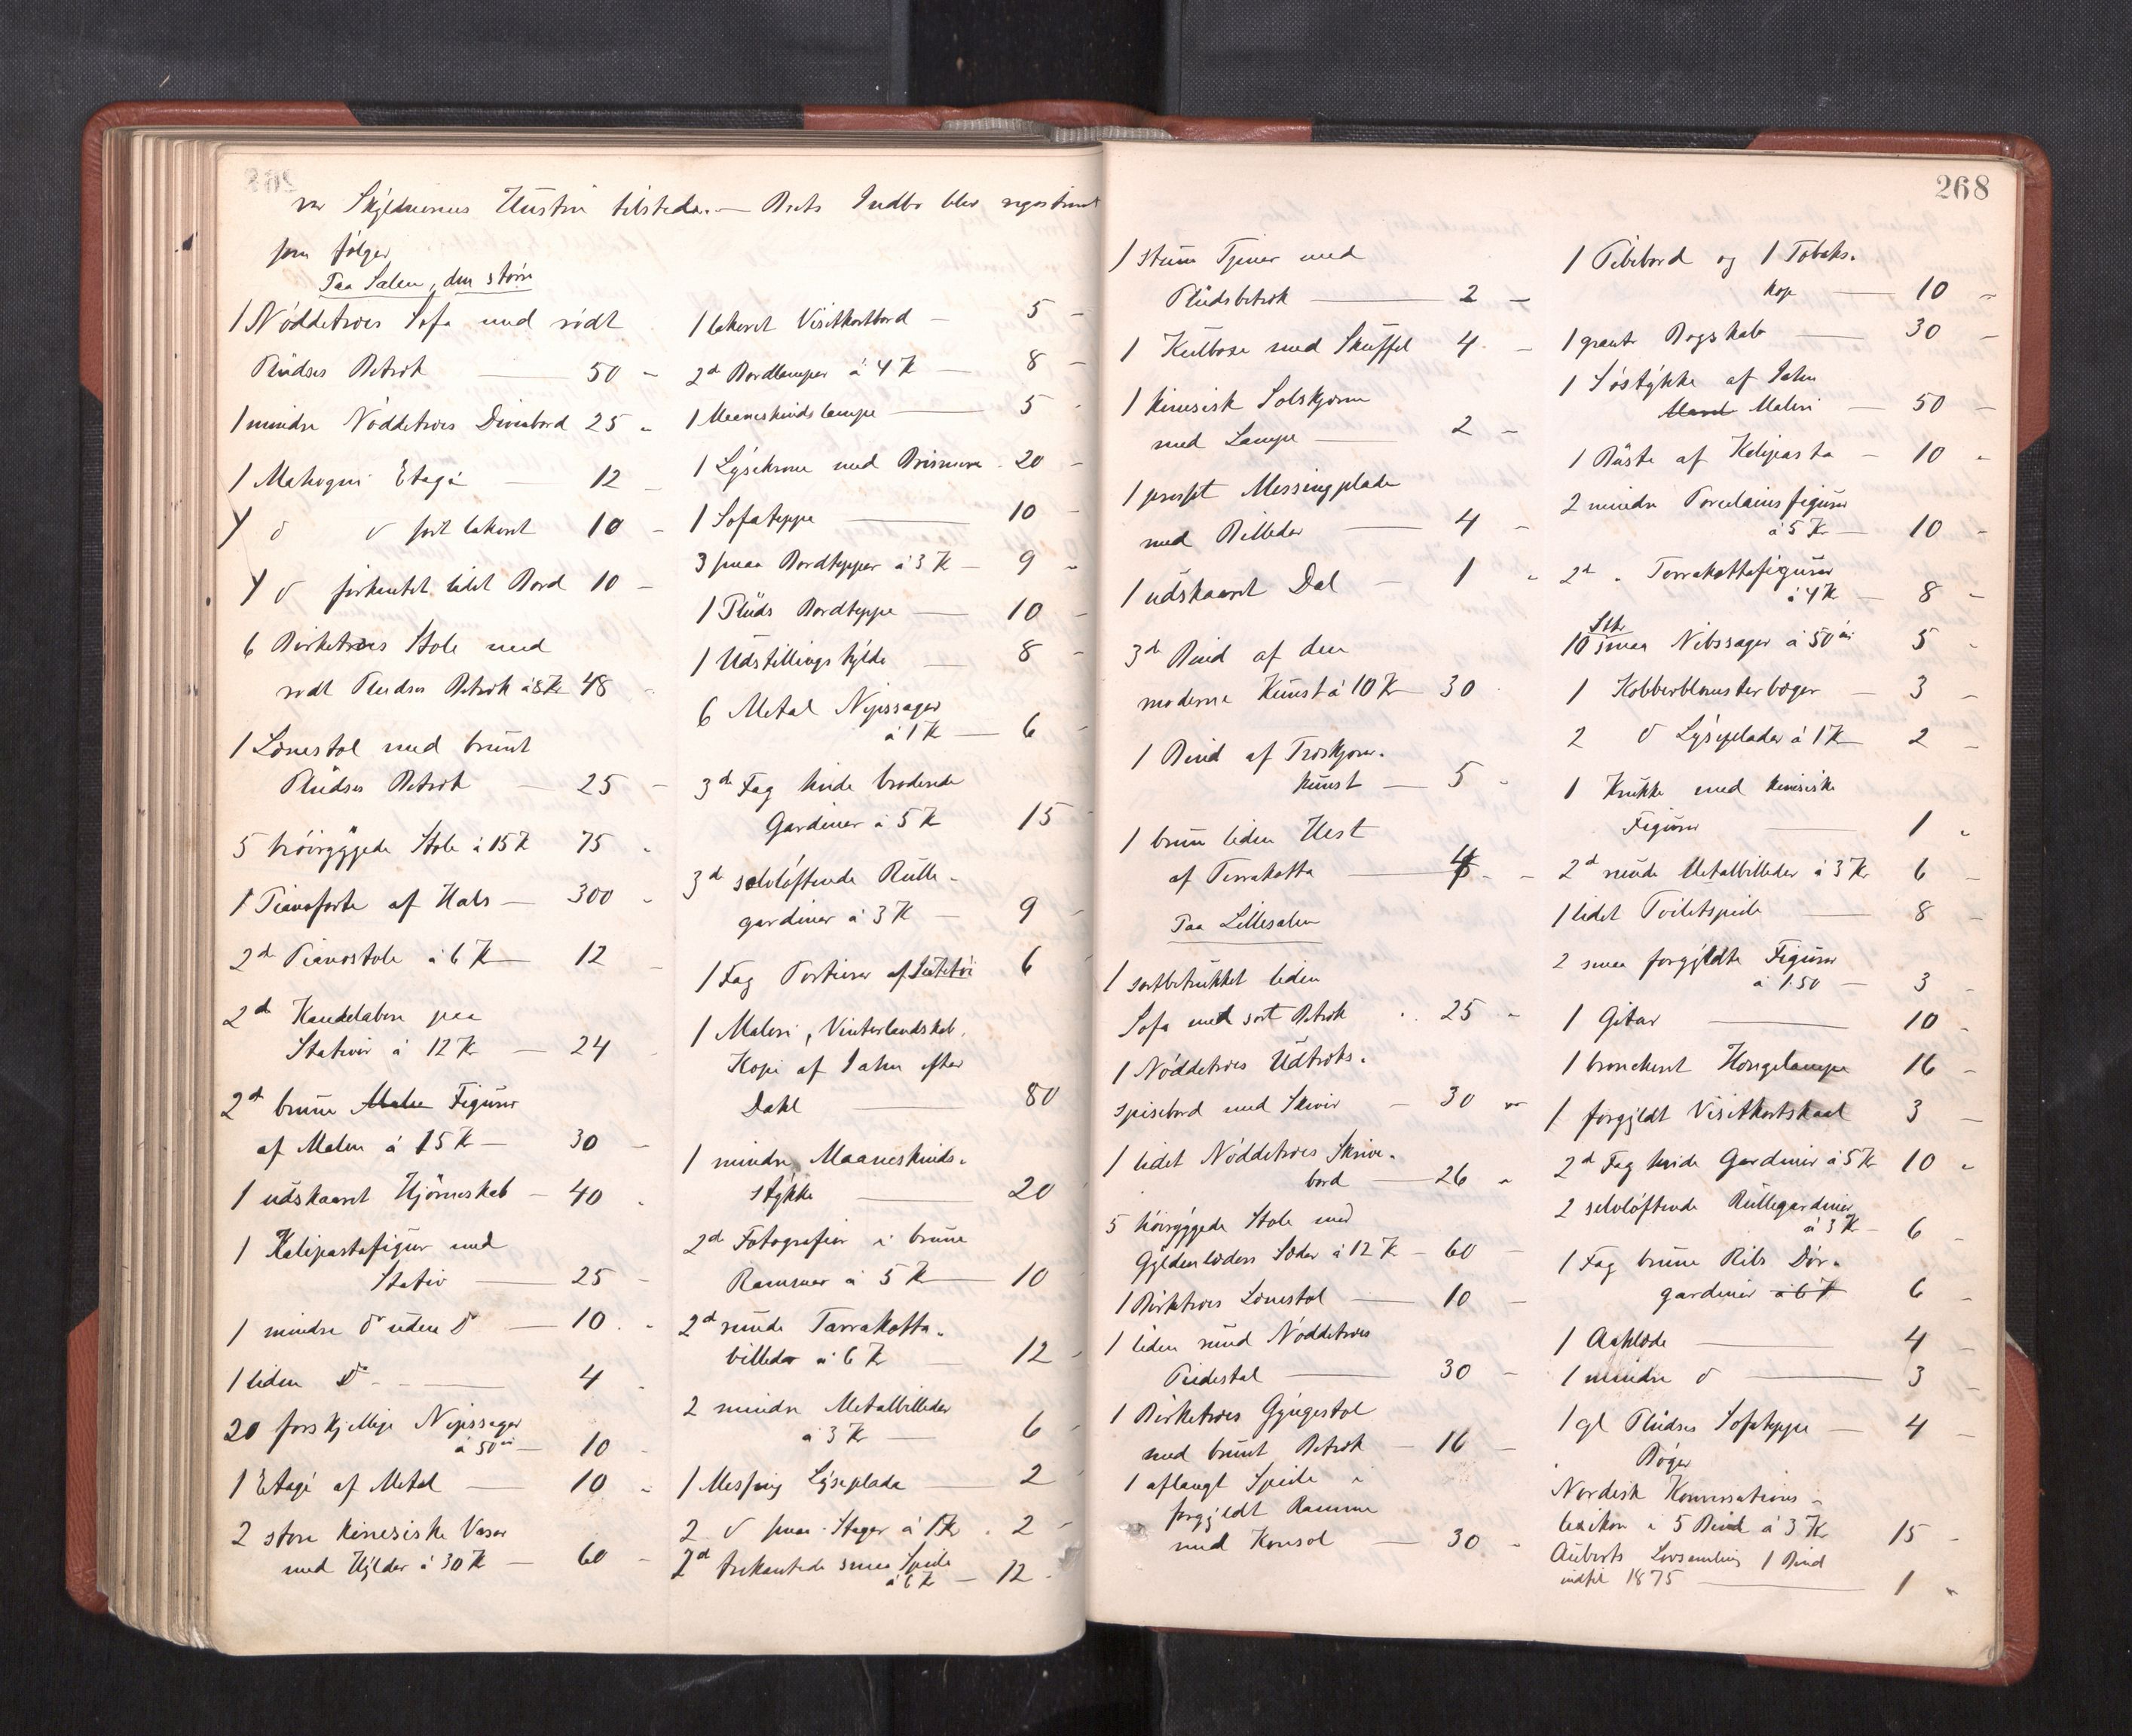 var Skyldnerens Hustru tilstede. — Boets Indbo blev registreret
som følger
Paa Salen, den større
1 Nøddetræes Sofa med rødt
Plüdses Betræk — 50 -
1 mindre Nøddetræes Divanbord 25 -
1 Mahogni Etagé — 12 -
1 do do sort lakeret 10 -
1 do firkantet lidet Bord 10 -
6 Birketræes Stole med
rødt Plüdses Betræk à 8 Kr 48 -
1 Lænestol med brunt
Plüdses Betræk — 25 -
5 høiryggede Stole à 15 K 75 -
1 Pianoforte af Hals — 300 -
2 do Pianostole à 6 K — 12 -
2 do Kandelabere paa
Stativer à 12 K — 24 -
2 do brune Malm Figurer
af Malm à 15 K — 30 -
1 udskaaret Hjørneskab — 40 -
1 Kalipastafigur med
Stativ — 25 -
1 mindre do uden do — 10 -
1 liden do — 4 -
20 forskjellige Nipssager
à 50 øre — 10 -
1 Etagé af Metal — 10 -
2 store kinesiske Vaser
med Hylder à 30 K — 60 -
1 lakeret Visitkortbord — 5 -
2 do Bordlamper à 4 K — 8 -
1 Maaneskinds lampe — 5 -
1 Lysekrone med Prismer 20 -
1 Sofateppe — 10 -
3 smaa Bordtepper à 3 K — 9 -
1 Plüds Bordteppe — 10 -
1 Udstillings hylde — 8 -
6 Metal Nipssager
à 1 K — 6 -
3 do Fag hvide broderede
Gardiner à 5 K 15 -
3 do selvløftende Rulle-
gardiner à 3 K — 9 -
1 Fag Portierer af 6
1 Maleri, Vinterlandskab,
Kopi af Jahn efter
Dahl — 80
1 mindre Maaneskinds-
stykke — 20
2 do Fotografier i brune
Rammer à 5 K — 10
2 do runde Tarrakotta-
billeder à 6 K — 12 -
2 mindre Metalbilleder
à 3 K — 6 -
1 Messing Lyseplade — 2 -
2 do smaa Stager à 1 K 2 -
2 do trekantede smaa Speile
à 6 K — 12 -
268
1 stum Tjener med
Plüdsbetræk — 2 -
1 Kulboxe med Skuffel 4 -
1 kinesisk Solskjærm
med Lampe — 2 -
1 presset Messingplade
med Billeder — 4 -
1 udskaaret Dal — 1 -
3 do Bind af den
moderne Kunst à 10 K 30 -
1 Bind af Træskjærer-
kunst — 5 -
1 brun liden Hest
af Terrakotta — 4 -
Paa Lillesalen
1 sortbetrukket liden
Sofa med sort Betræk 25 -
1 Nøddetræes Udtræks-
spisebord med Skiver — 30 -
1 lidet Nøddetræes Skrive-
bord — 26 -
5 høiryggede Stole med
Gyldenlæders Sæder à 12 K — 60 -
1 Birketræes Lænestol — 10 -
1 liden rund Nøddetræes
Piedestal — 30 -
1 Birketræes Gyngestol
med brunt Betræk — 16 -
1 aflangt Speile i
forgyldt Ramme
med Konsol — 30 -
1 Pibebord og 1 Tobaks-
kop — 10 -
1 grønt Bogskab — 30 -
1 Søstykke af Jahn
Maleri — 50 -
1 Büste af Kalipasta — 10 -
2 mindre Porcelainsfigurer
à 5 K — 10 -
2 do " Terrakottafigurer
à 4 K — 8 -
10 Stk smaa Nibssager à 50 øre 5 -
1 Kobberblomsterbæger — 3 -
2 do Lyseplader à 1 K 2 -
1 Krukke med kinesiske
Figurer — 1 -
2 do runde Metalbilleder à 3 K 6 -
1 lidet Toiletspeile — 8 -
2 smaa forgyldte Figurer
à 1.50 — 3 -
1 Gitar — 10 -
1 broncheret Hængelampe 16 -
1 forgyldt Visitkortskaal 3 -
2 do Fag hvide Gardiner à 5 K 10 -
2 selvløftende Rullegardiner
à 3 K — 6 -
1 Fag brune Ribs Dør-
gardiner à 6 K 6 -
1 Aaklæde — 4 -
1 mindre do — 3 -
1 gl Plüdses Sofateppe — 4 -
Bøger
Nordisk Konversations-
lexikon i 5 Bind à 3 K 15 -
Auberts Lovsamling 1 Bind
indtil 1875 — 1 -